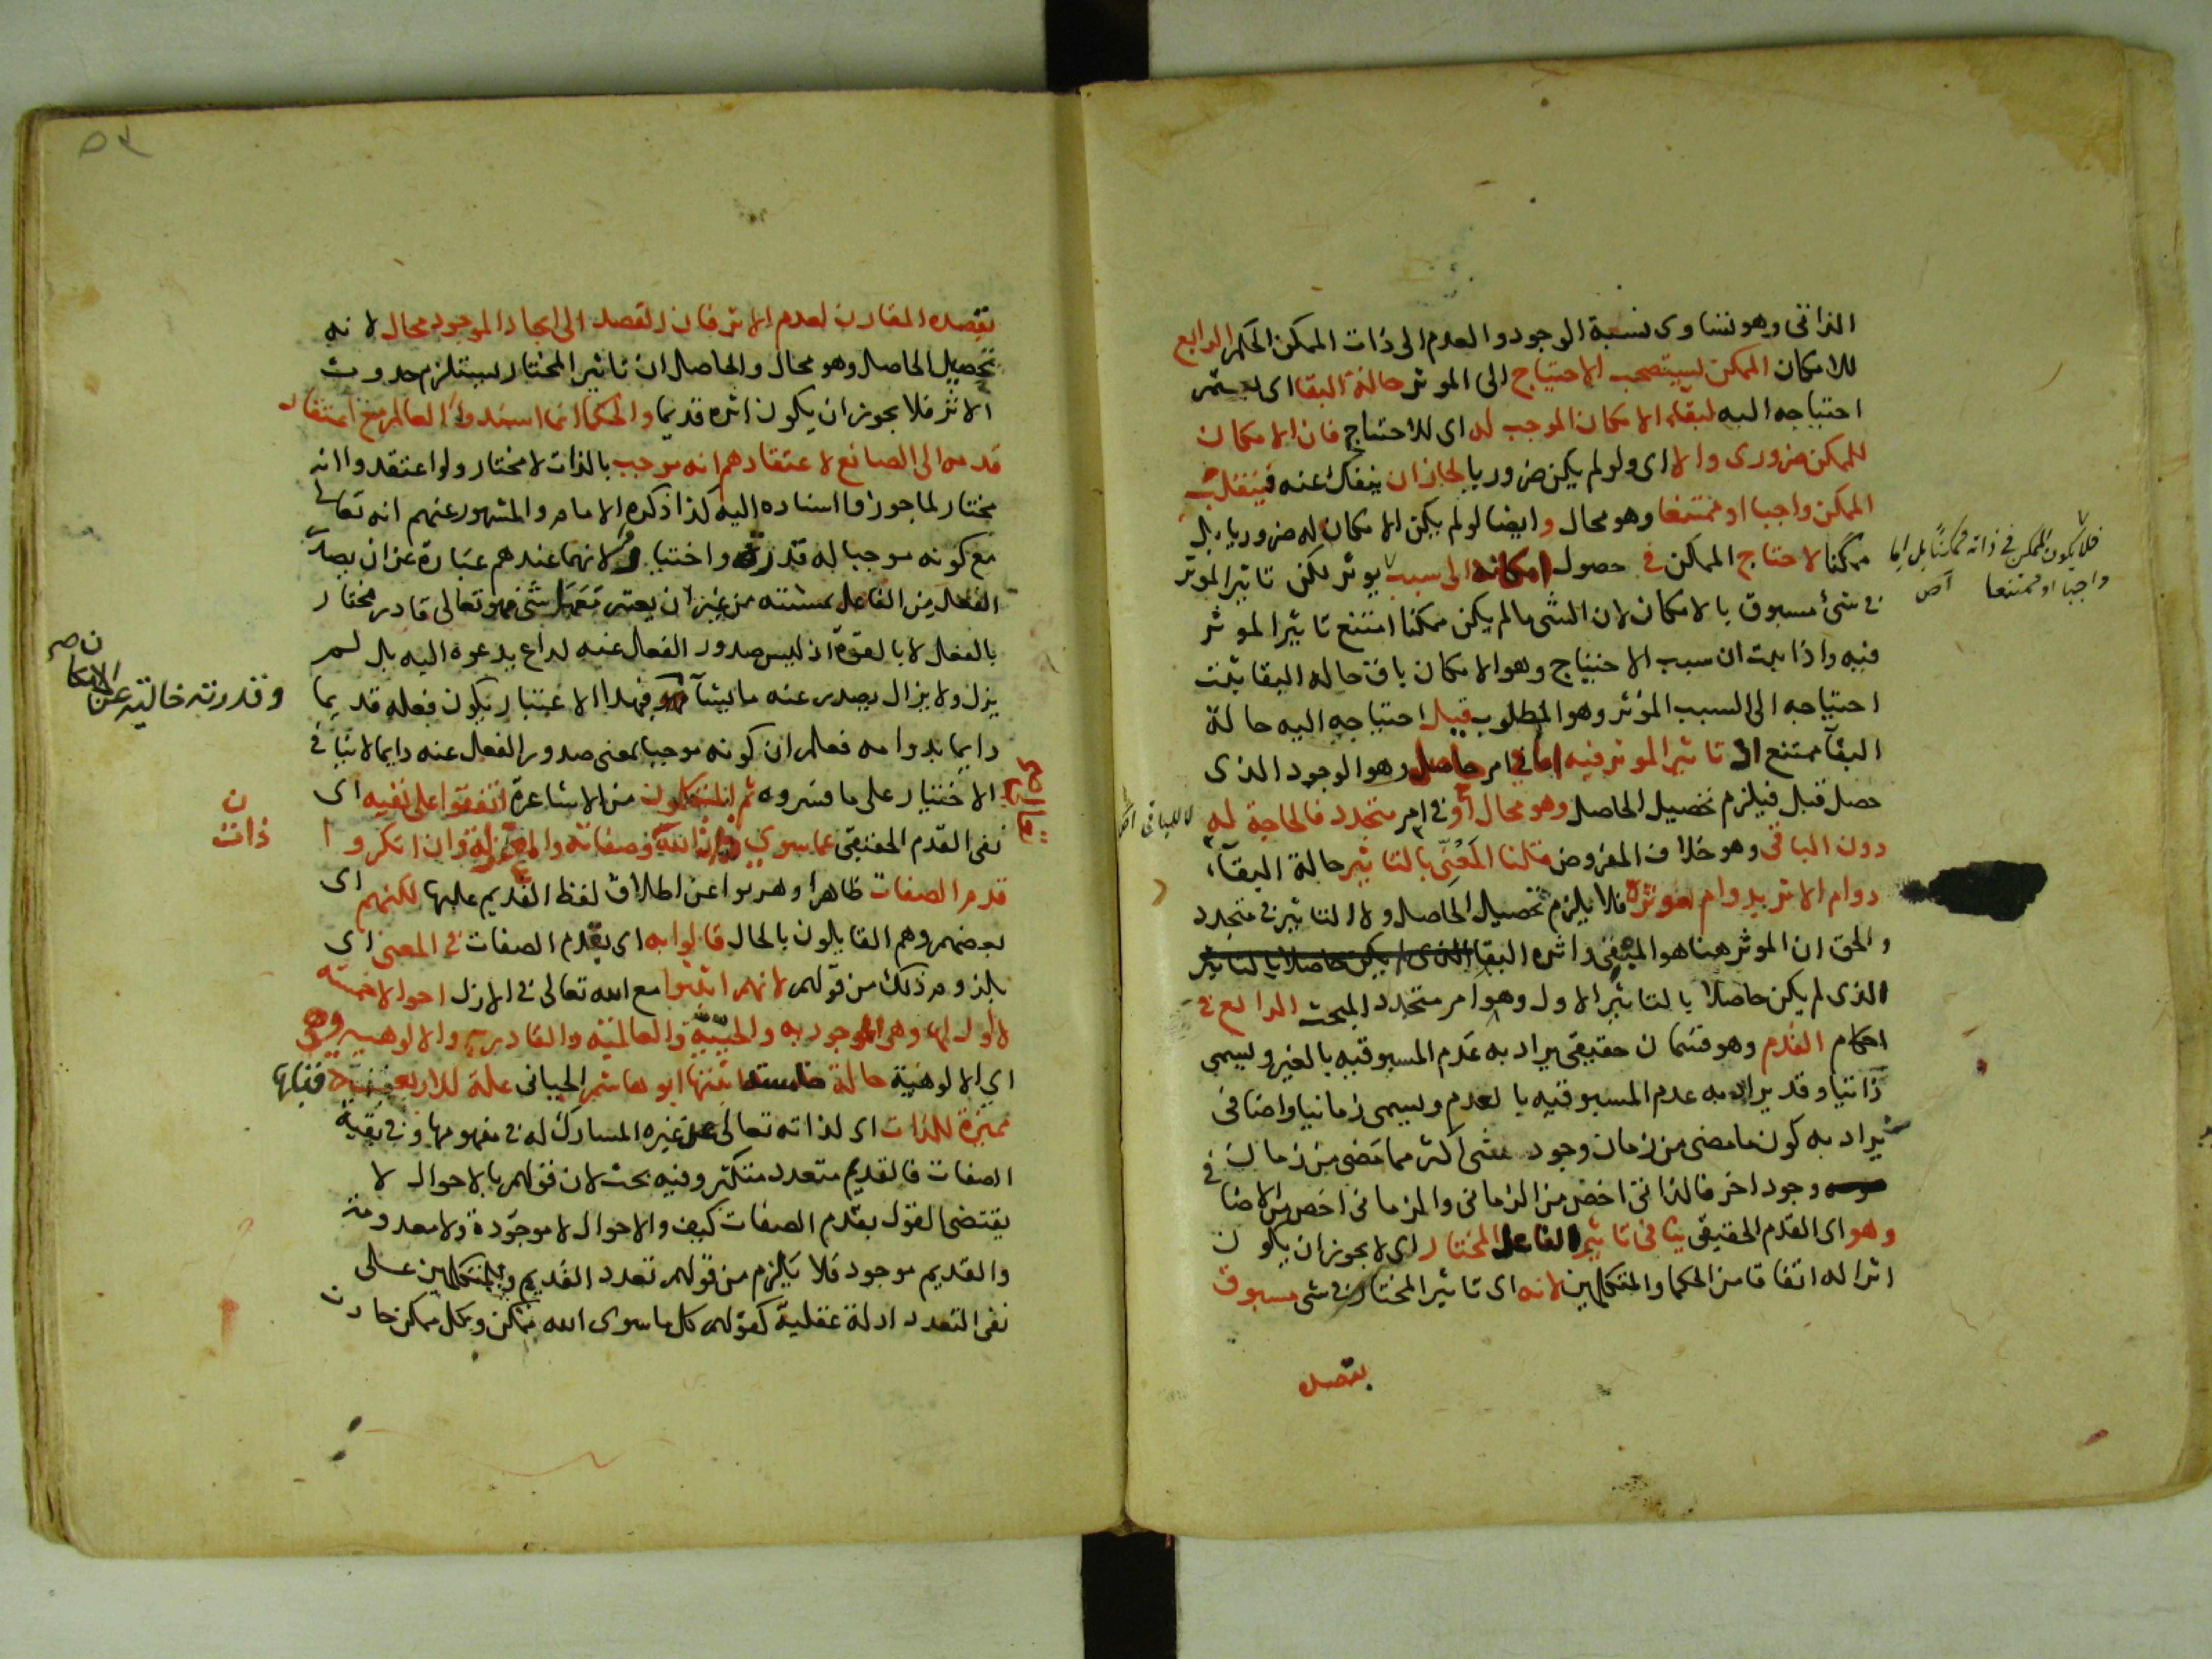 الذاتى وهو تساوى نسبة الوجود والعدم الى ذات الممكن الحكم الرابع
للامكان الممكن يستصحب الاحتياج الى الموثر حالة البقا اى يستمر
احتياجه اليه لبقا الامكان الموجب له اى للاحتياج فان الامكان
للممكن ضرورى والا اى ولو لم يكن ضروريا لجاز ان ينفك عنه فينقلب
الممكن واجبا او ممتنعا وهو محال وايضا لو لم يكن الامكان له ضروريا بل
ممكنا لاحتاج الممكن فى حصول امكانه الى سبب يوثر لكن تاثير الموثر
فى شئ مسبوق بالامكان لان الشى مالم يكن ممكنا امتنع تاثير الموثر
فيه واذا ثبت ان سبب الاحتياج وهو الامكان باق حاله البقا يثبت
احتياجه الى السبب الموثر وهو المطلوب قيل احتياجه اليه حالة
البقآ ممتنع اذ تاثير الموثر فيه اما فى امر حاصل وهو الوجود الذى
حصل قبل فيلزم تحصيل الحاصل وهو محال او فى امر متجدد فالحاجة له
دون الباقى وهو خلاف المفروض قلنا المعنى بالتاثير حالة البقآء
دوام الاثر بدوام موثره فلا يلزم تحصيل الحاصل ولا التاثير فى متجدد
والحق ان الموثر هنا هو المبقى واثره البقا الذى لم يكن حاصلا بالتاثير
الذى لم يكن حاصلا بالتاثير الاول وهو امر متجدد المبحث الرابع فى
احكام القدم وهو قسمان حقيقى يراد به عدم المسبوقيه بالغير ويسمى
ذاتيا وقد يراد به عدم المسبوقيه بالعدم ويسمى زمانيا واضافى
يراد به كون ما مضى من زمان وجود شى اكثر مما مضى من زمان
وجود اخر فالذاتى اخص من الزمانى والزمانى اخص من الاضافى
وهو اى القدم الحقيقى ينافى تاثير الفاعل المختار اى لا يجوز ان يكون
اثرا له اتفاقا من الحكما والمتكلمين لانه اى تاثير المختار فى شى مسبوق
بقصده
فلا يكون الممكن فى ذاته ممكنا بل اما
واجبا او ممتنعا
لا للباقى
بقصده المقارن لعدم الاثر فان القصد الى ايجاد الموجود محال لانه
تحصيل الحاصل وهو محال والحاصل ان تاثير المختار يستلزم حدوث
الاثر فلا يجوز ان يكون اثره قديما والحكما انما اسندوا العالم مع اعتقاد
قدمه الى الصانع لاعتقادهم انه موجب بالذات لا مختار ولو اعتقدوا انه
مختار لما جوزوا اسناده اليه كذا ذكره الامام والمشهور عنهم انه تعالى
مع كونه موجبا له قدرة واختيار لانهما عندهم عبارة عن ان يصدر
الفعل من الفاعل بمشيته من غير ان يعتبر معها شى فهو تعالى قادر مختار
بالفعل لا بالقوة اذ ليس صدور الفعل عنه لداع يدعوه اليه بل لم
يزل ولا يزال يصدر عنه ما يشآ فبهذا الاعتبار يكون فعله قديما
دايما بدوامه فعلم ان كونه موجبا بمعنى صدور الفعل عنه دايما لا ينافى
الاختيار على ما فسروه ثم المتكلمون من الاشاعرة اتفقوا على نفيه اى
نفى القدم الحقيقى عما سوى ذات الله وصفاته والمعتزلة وان انكروا
قدم الصفات ظاهرا وهربوا عن اطلاق لفظ القديم عليها لكنهم اى
بعضهم وهم القايلون بالحال قالوا به اى بقدم الصفات فى المعنى اى
بلزوم ذلك من قولهم لانهم اثبتوا مع الله تعالى فى الازل احوالا خمسة
لا اول لها وهى الموجوديه والحييّية والعالمية والقادرية والالوهيه وهى
اى الالوهية حالة خامسة اثبتها ابو هاشم الجبائى علة للاربعة قبلها
مميزة للذات اى لذاته تعالى عن غيره المشارك له فى مفهومها وفى بقية
الصفات فالقديم متعدد متكثر وفيه بحث لان قولهم بالاحوال لا
يقتضى القول بقدم الصفات كيف والاحوال لا موجودة ولا معدومة
والقديم موجود فلا يلزم من قولهم تعدد القديم وللمتكلمين على
نفى التعدد ادلة عقلية كقولهم كل ما سوى الله ممكن وكل ممكن حادث
وقدرته خالية عن الامكان
ذات